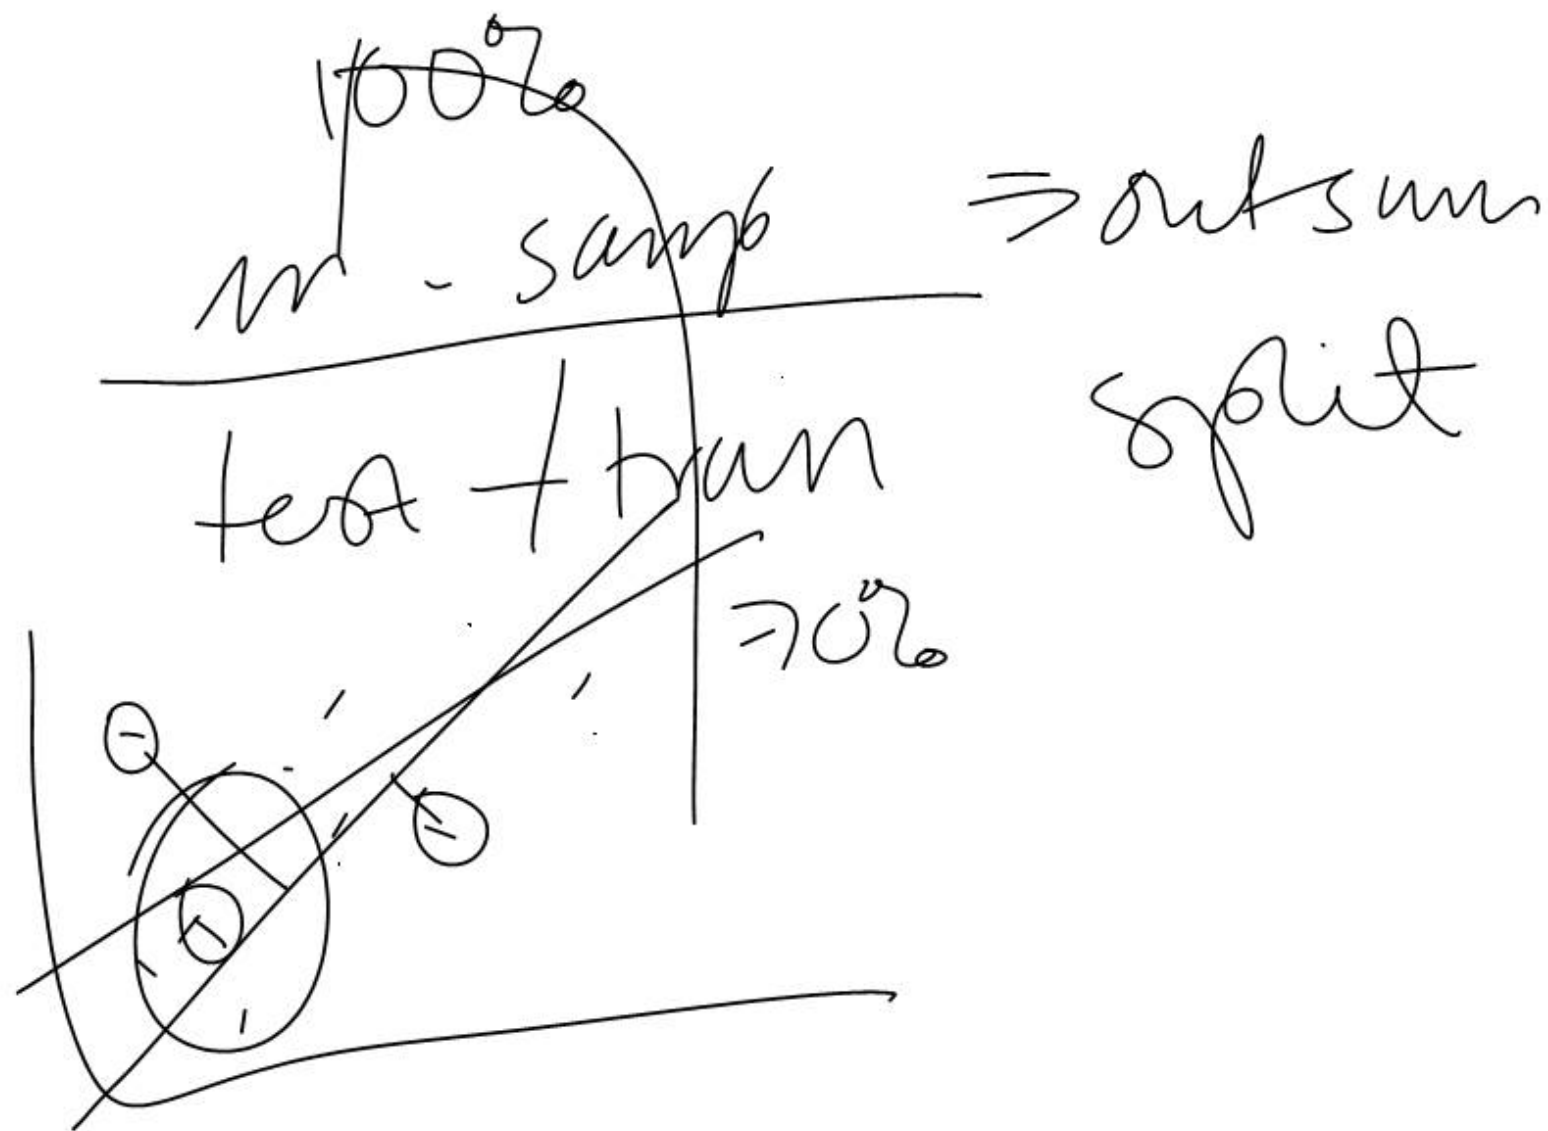 100%
in - samp
⇒ outsam
split
test + train
70%